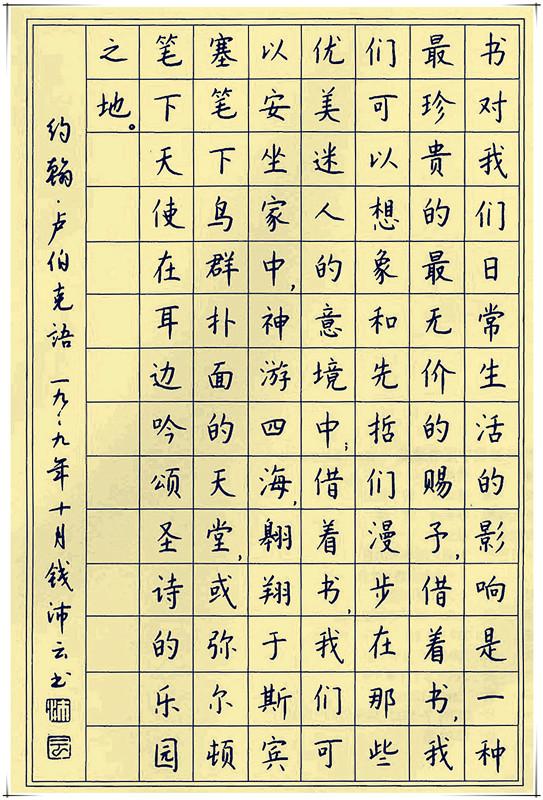 书对我们日常生活的影响是一种
最珍贵的最无价的赐予,借着书,我
们可以想象和先哲们漫步在那些
优美迷人的意境中;借着书,我们可
以安坐家中,神游四海,翱翔于斯宾
塞笔下鸟群扑面的天堂,或弥尔顿
笔下天使在耳边吟颂圣诗的乐园
之地。
约翰·卢伯克語 一九八九年十月钱沛云书
沛
云